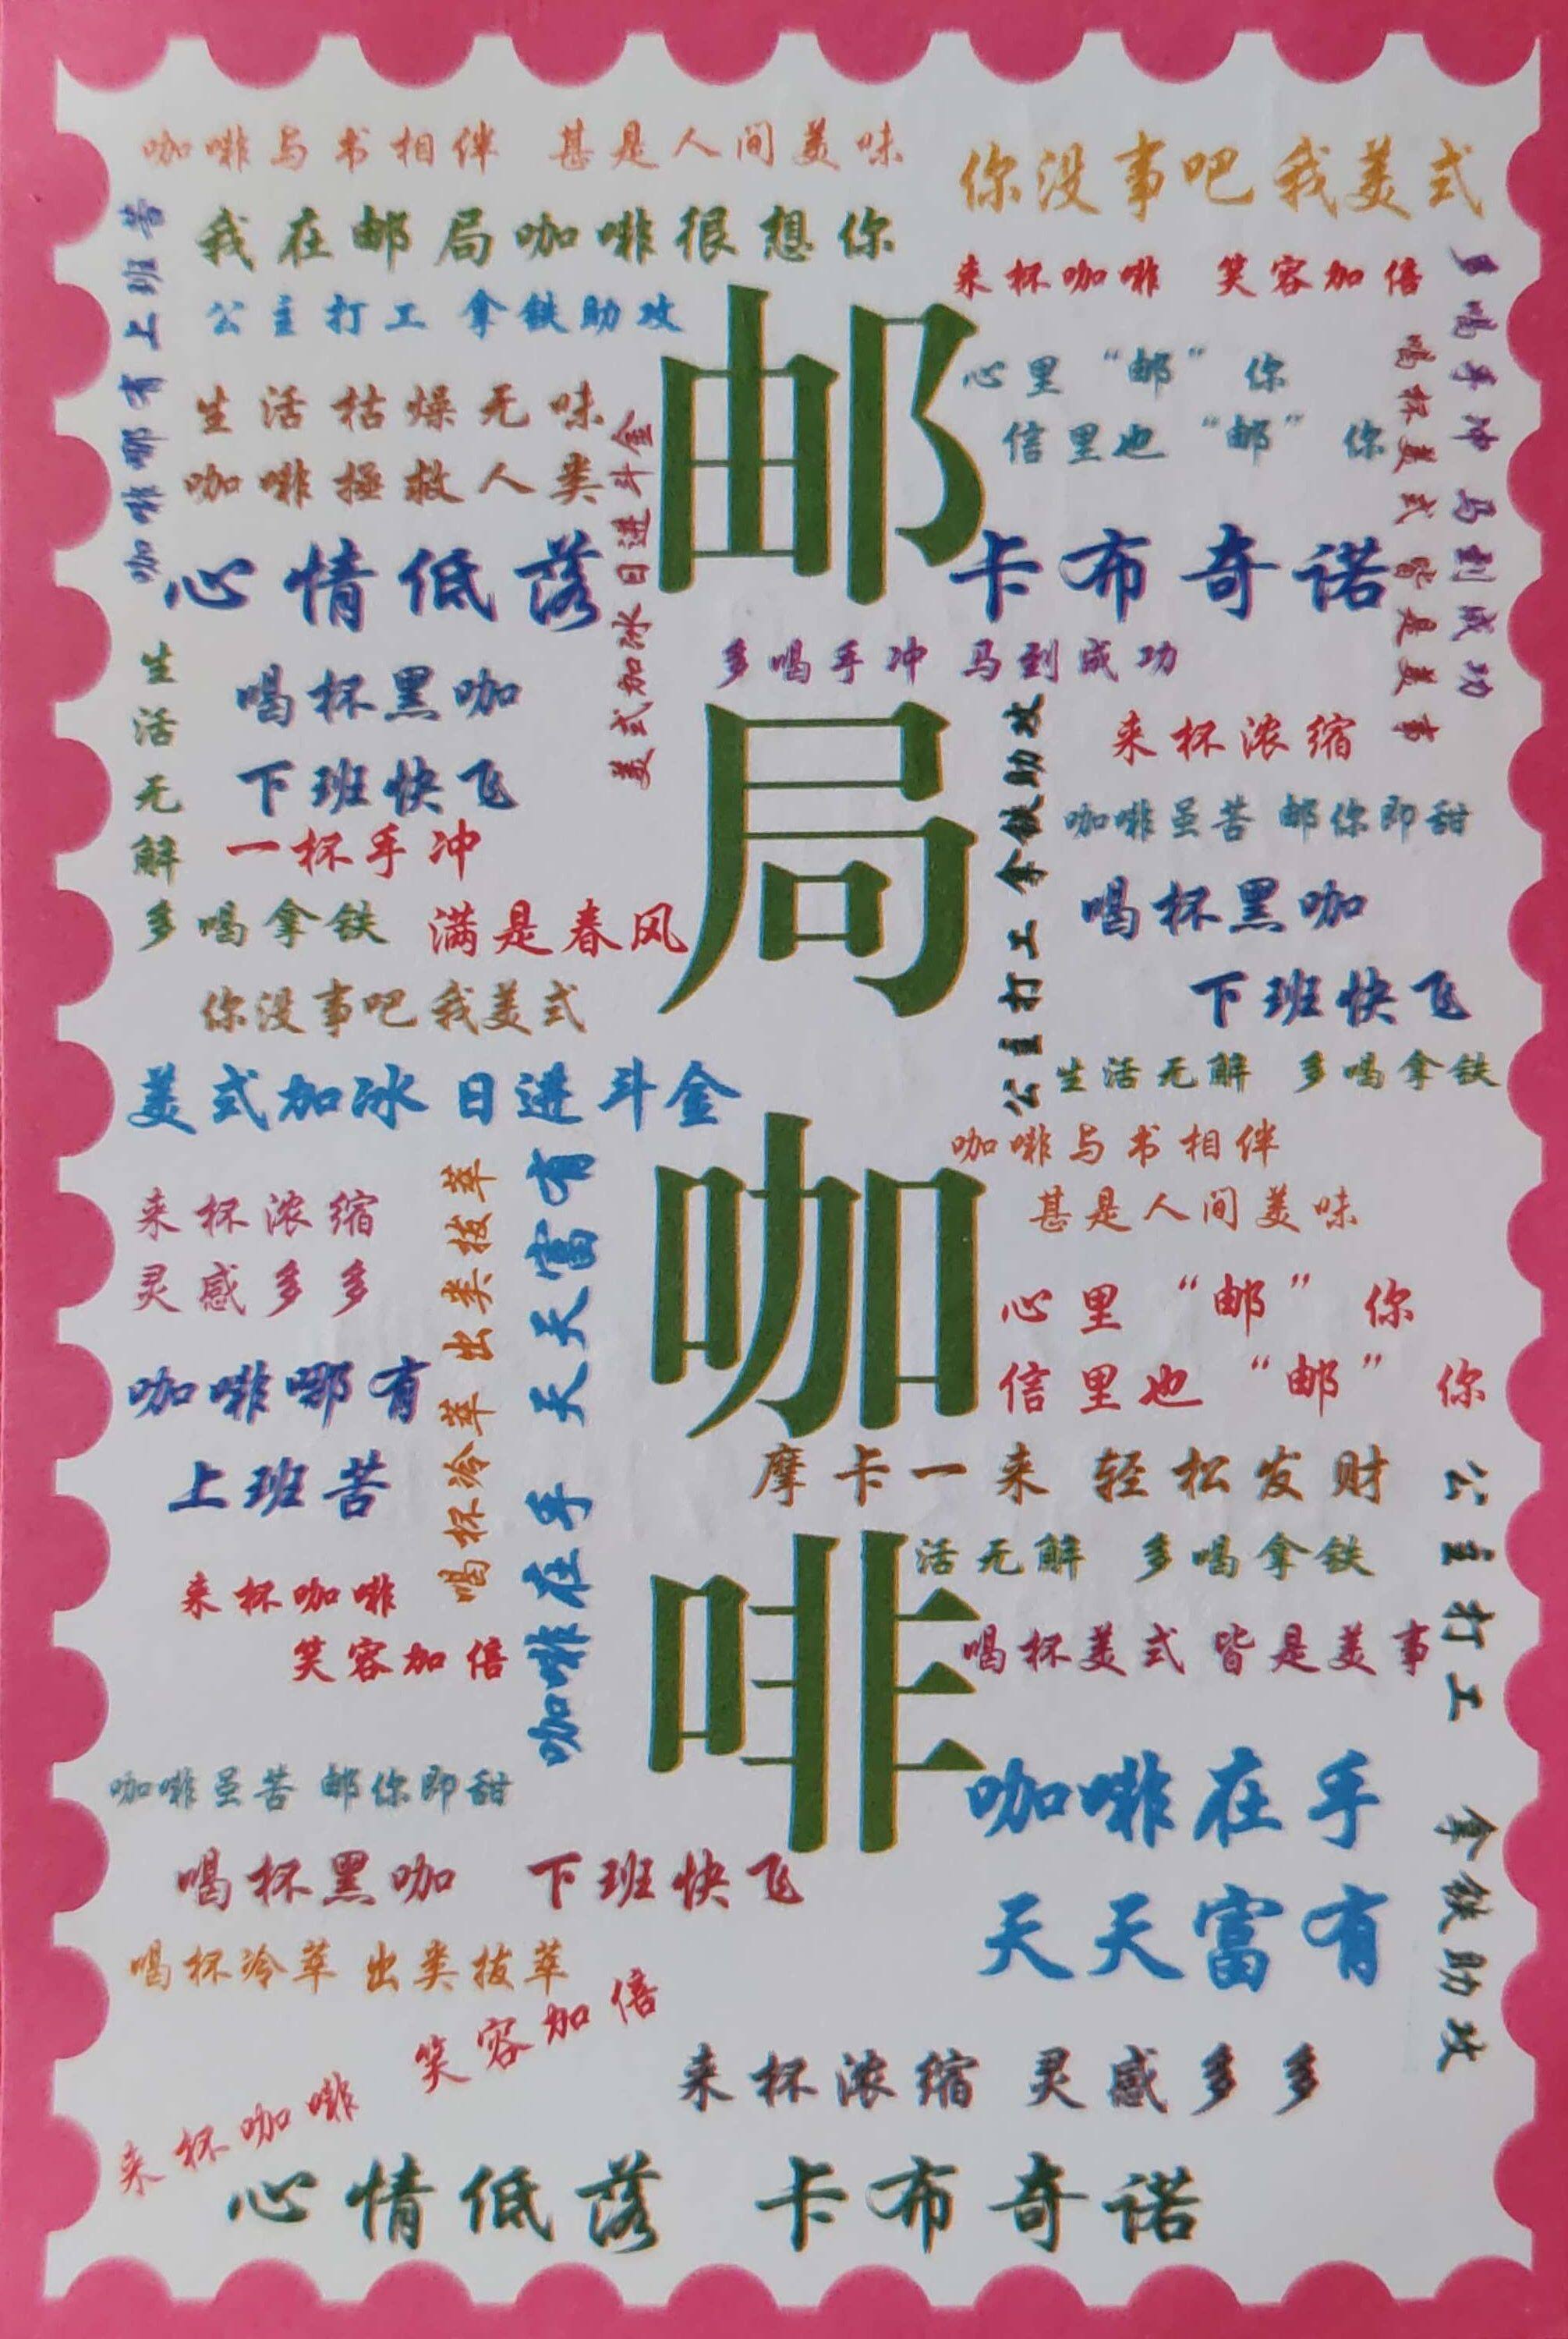 咖啡与书相伴 甚是人间美味
你没事吧 我美式
我在邮局咖啡很想你
来杯咖啡 笑容加倍
公主打工 拿铁助攻
咖啡哪有上班苦
心里“邮”你
信里也“邮”你
多喝手冲 马到成功
喝杯美式 皆是美事
生活枯燥无味
咖啡拯救人类
美式加冰 日进斗金
邮
局
咖
啡
心情低落
卡布奇诺
多喝手冲 马到成功
喝杯黑咖
下班快飞
生活无解
多喝拿铁
一杯手冲
满是春风
公主打工 拿铁助攻
来杯浓缩
咖啡虽苦 邮你即甜
喝杯黑咖
下班快飞
你没事吧 我美式
生活无解 多喝拿铁
美式加冰 日进斗金
咖啡与书相伴
甚是人间美味
来杯浓缩
灵感多多
喝杯冷萃 出类拔萃
咖啡在手 天天富有
心里“邮”你
信里也“邮”你
咖啡哪有
上班苦
摩卡一来 轻松发财
活无解 多喝拿铁
公主打工 拿铁助攻
来杯咖啡
笑容加倍
喝杯美式 皆是美事
咖啡虽苦 邮你即甜
咖啡在手
天天富有
喝杯黑咖 下班快飞
喝杯冷萃 出类拔萃
来杯咖啡 笑容加倍
来杯浓缩 灵感多多
心情低落 卡布奇诺